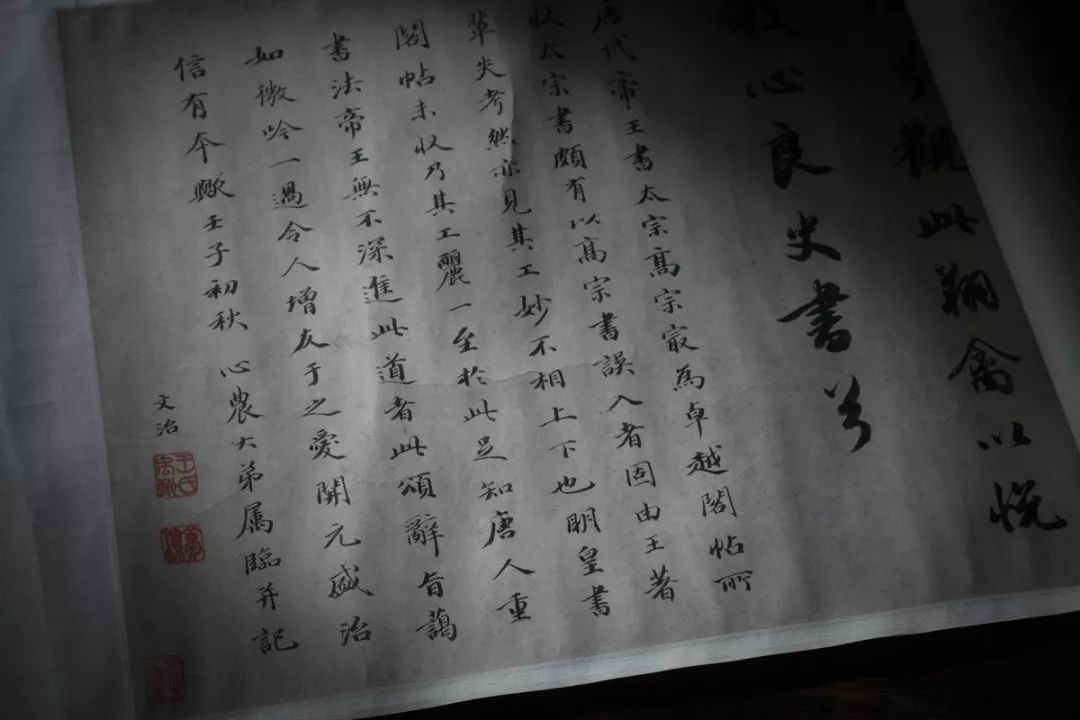 兮觀此翔禽以悦
我心良史書兮
唐代帝王書太宗高宗冣為卓越閣帖所
收太宗書頗有以高宗書誤入者固由王著
輩失考然亦見其工妙不相上下也明皇書
閣帖未收乃其工麗一至於此足知唐人重
書法帝王無不深進此道者此頌辭旨藹
如微吟一過令人增友于之愛開元盛治
信有本歟壬子初秋 心農大弟属臨并記
文治
王氏禹卿